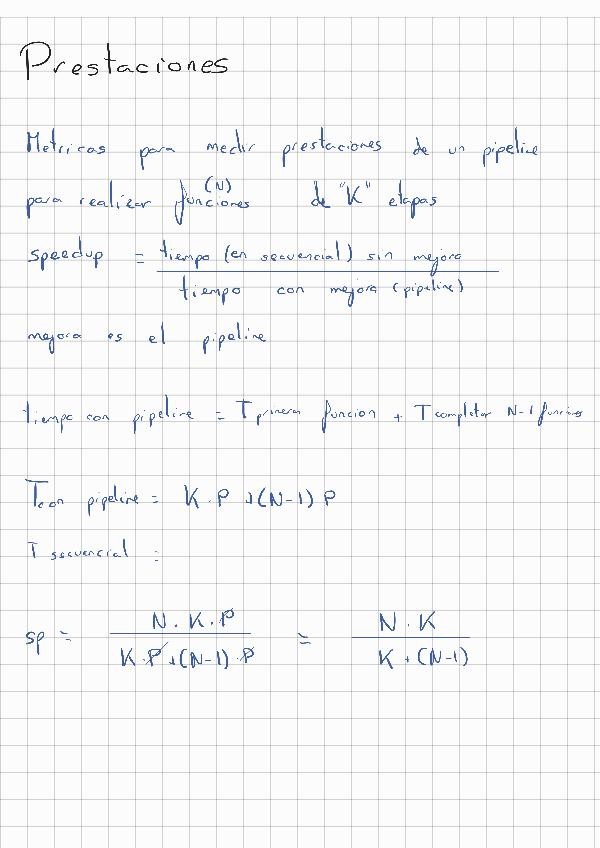 Prestaciones
Metricas para medir prestaciones de un pipeline
para realizar funciones (N) de "K" etapas
speedup = tiempo (en secuencial) sin mejora
tiempo con mejora (pipeline)
mejora es el pipeline
tiempo con pipeline = T primera funcion + T completar N-1 funciones
Tcon pipeline = K · P + (N-1) P
T secuencial =
sp = N · K · P / K · P + (N-1) · P = N · K / K + (N-1)